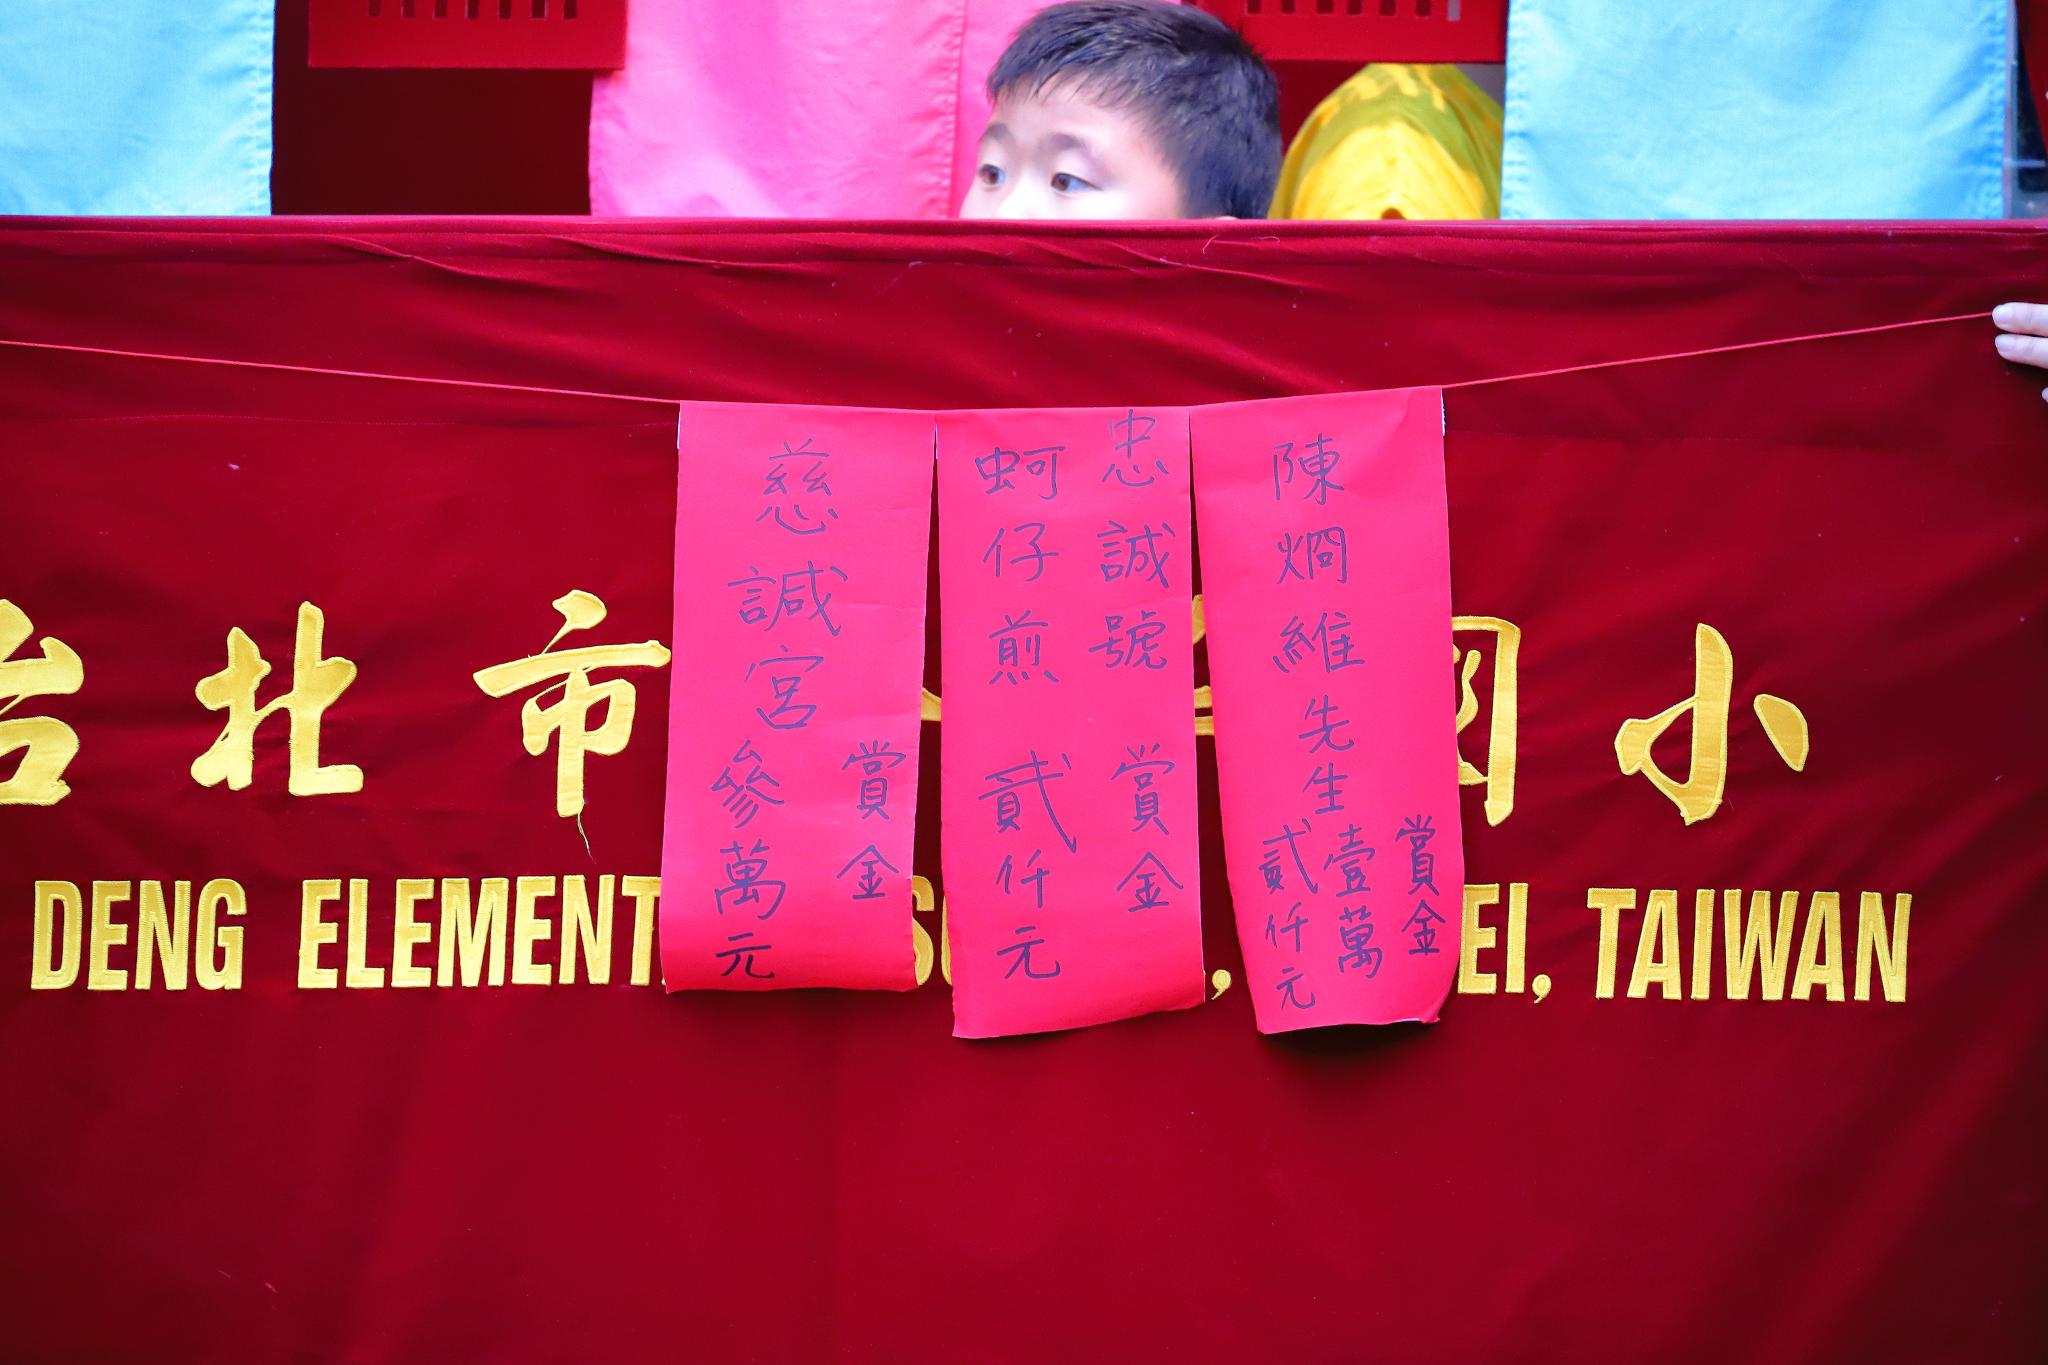 台北市
國小
DENG ELEMENT
EI, TAIWAN
慈諴宮
賞金
參萬元
忠誠號
蚵仔煎
賞金
貳仟元
陳炯維先生
賞金
壹萬
貳仟元